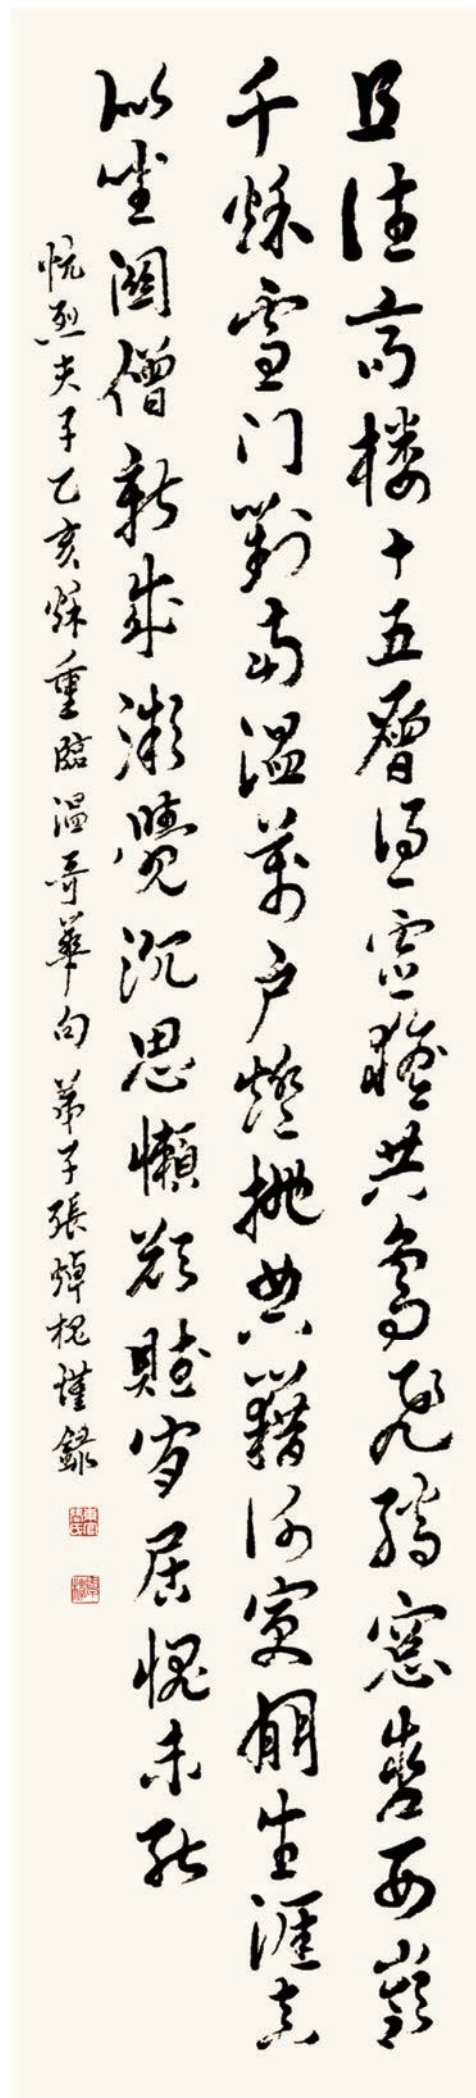 且住高楼十五層憑虛猶共鳥飛騰窓含西嶺
千秋雪門對南溫萬戶燈抛典籍謝賓朋生涯真
似坐關僧新來漸覺沉思懶欲賦閒居愧未能
忼烈夫子乙亥秋重臨溫哥華句 弟子張焯槐謹錄